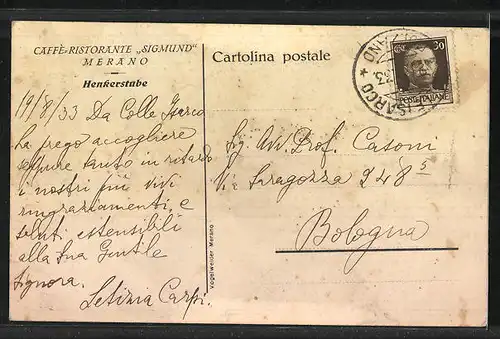 CAFFÈ-RISTORANTE „SIGMUND"
MERANO
Henkerstube
Cartolina postale
30
POSTE ITALIANE
ISARCO
19/8/33 Da Colle Isarco
La prego accogliere
seppure tanto in ritardo
i nostri più vivi
ringraziamenti, e
saluti estensibili
alla Sua Gentile
Signora.
Letizia Carpi.
Sig. Avv. Prof. Casoni
Via Saragozza 248
Bologna
Vogelweider Merano